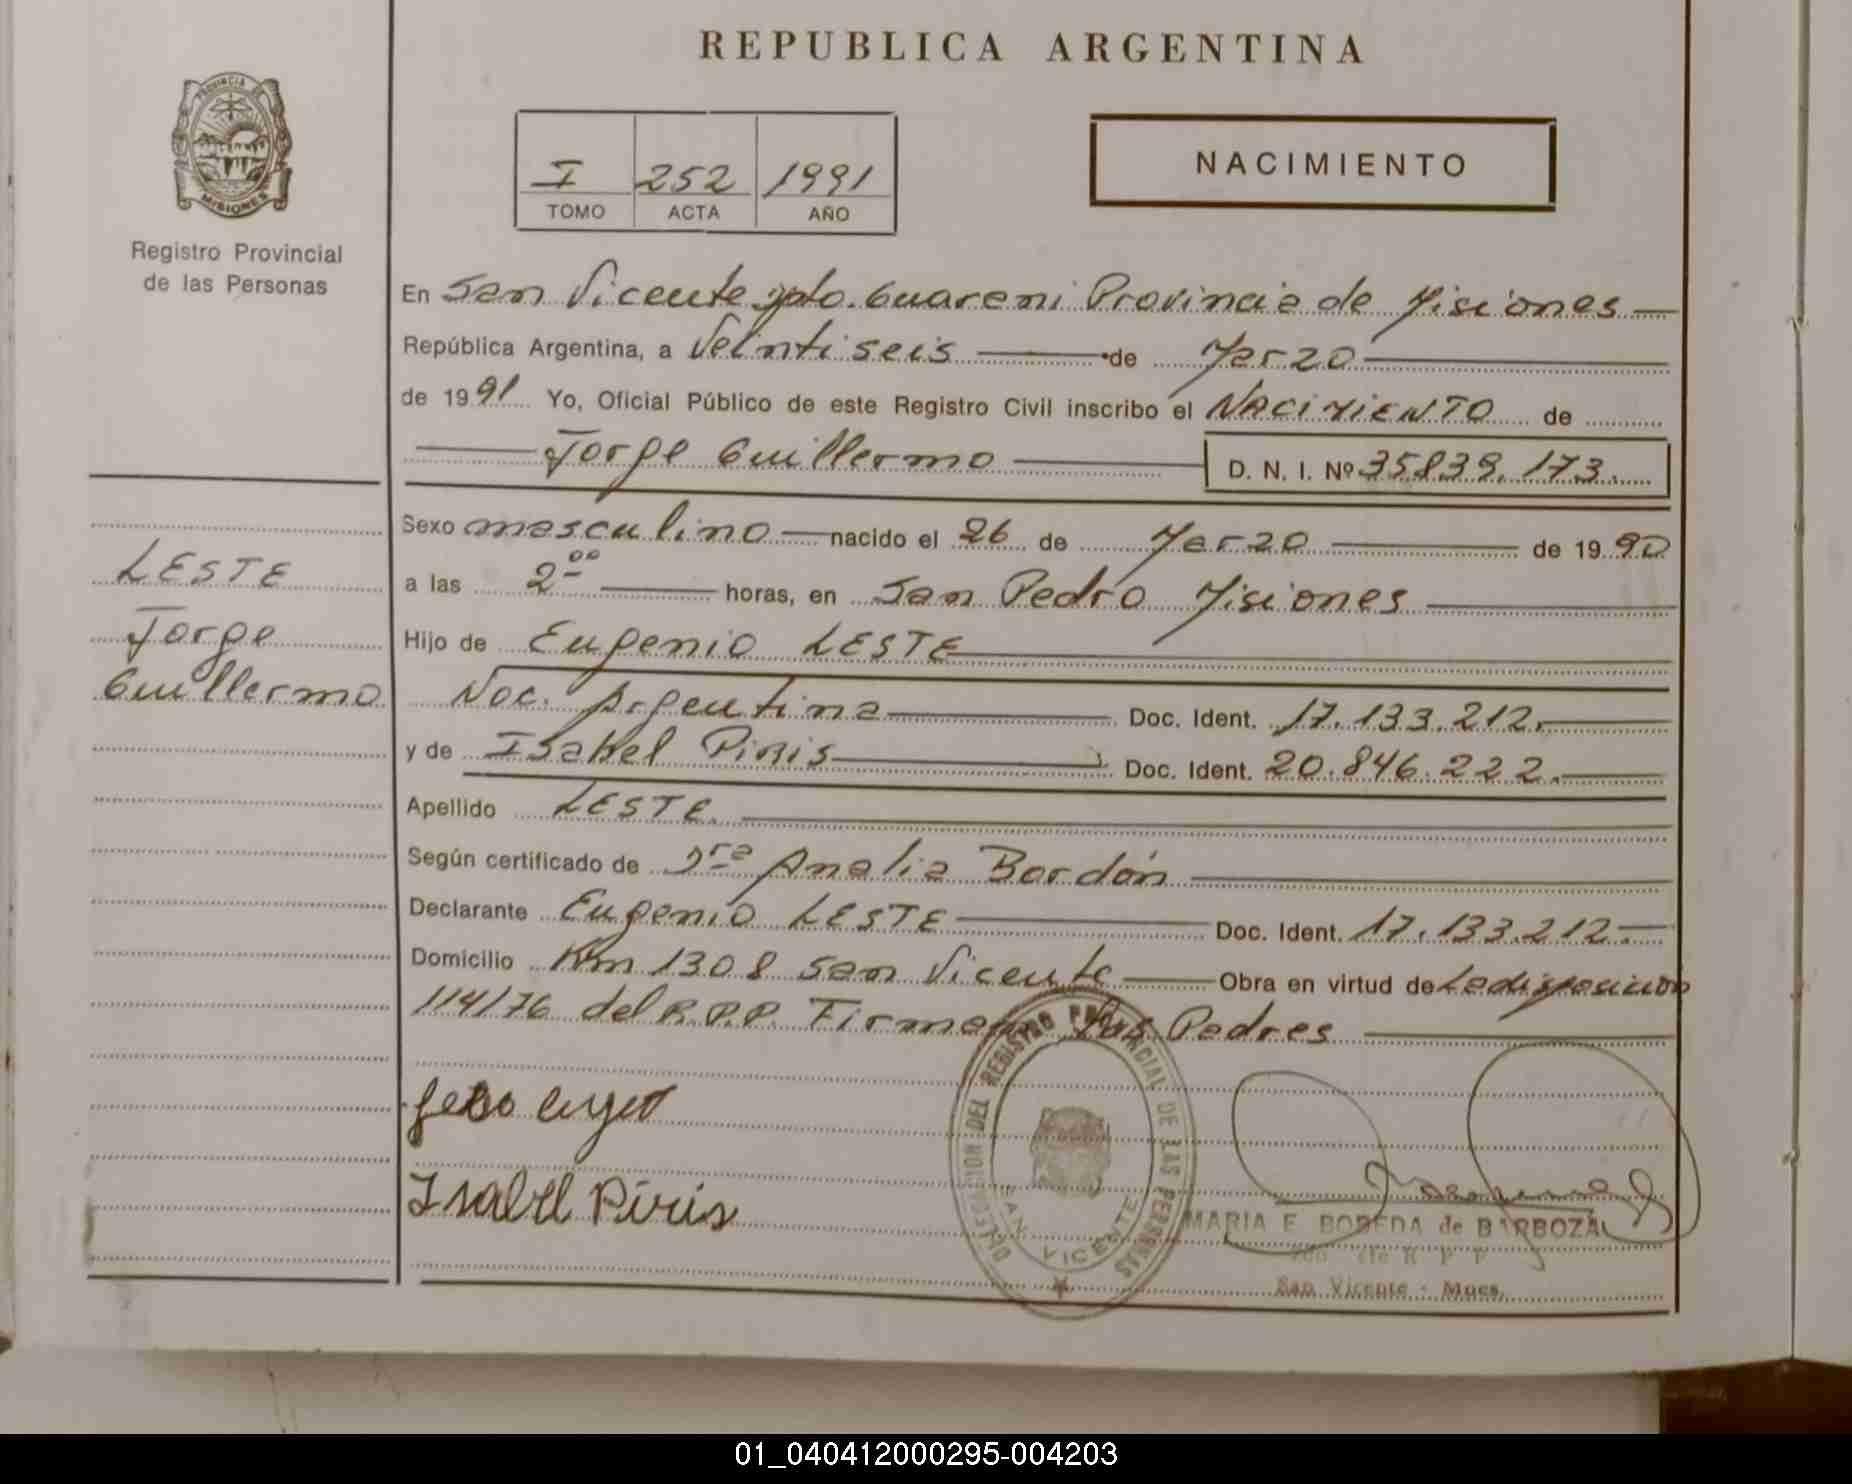 REPUBLICA ARGENTINA
PROVINCIA DE
MISIONES
Registro Provincial
de las Personas
I 252 1991
TOMO ACTA AÑO
NACIMIENTO
En San Vicente Dpto. Guarani Provincia de Misiones
República Argentina, a Veintiseis de Marzo
de 1991 Yo, Oficial Público de este Registro Civil inscribo el NACIMIENTO de
Jorge Guillermo D. N. I. Nº 35839.173.
Sexo masculino nacido el 26 de Marzo de 1990
a las 2 00 horas, en San Pedro Misiones
Hijo de Eugenio LESTE
Nac. Argentina Doc. Ident. 17.133.212.
y de Isabel Piris Doc. Ident. 20.846.222.
Apellido LESTE.
Según certificado de Dra Analia Bordón
Declarante Eugenio LESTE Doc. Ident. 17.133.212.
Domicilio Km 1308 San Vicente Obra en virtud de La disposición
114/76 del R.P.P. Firman los Padres
LESTE
Jorge
Guillermo
Isabel Piris
DELEGACION DEL REGISTRO PROVINCIAL DE LAS PERSONAS
SAN VICENTE
MARIA E. BOBEDA de BARBOZA
de R P P
San Vicente - Mnes.
01_040412000295-004203